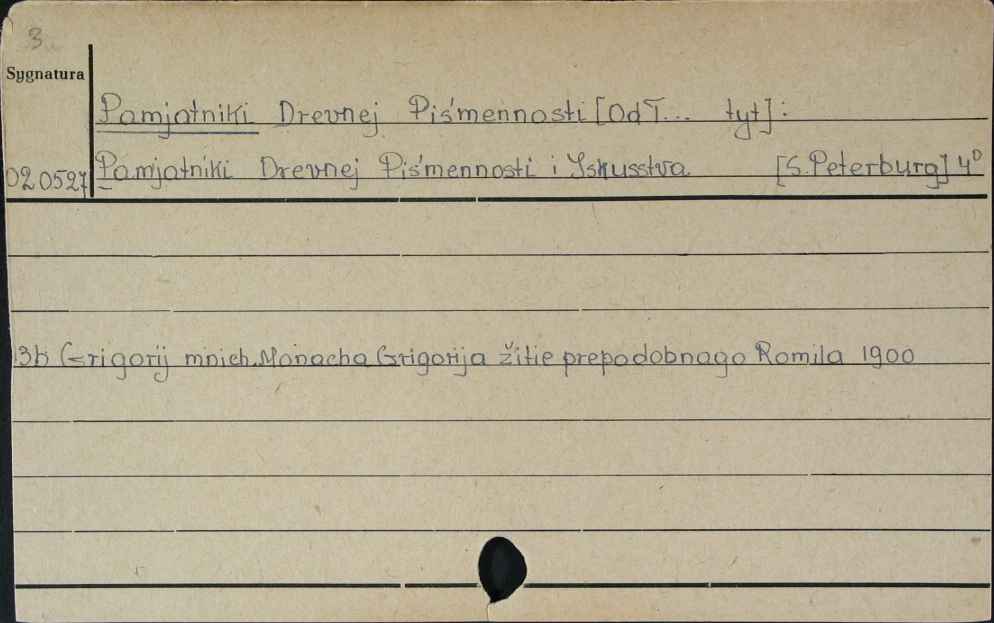 3
Sygnatura
Pamjatniki Drevnej Piśmennosti [Od T... tyt]:
020527 Pamjatniki Drevnej Piśmennosti i Iskusstva [S. Peterburg] 4°
Grigorij mnich. Monacha Grigorija žitie prepodobnago Romila 1900